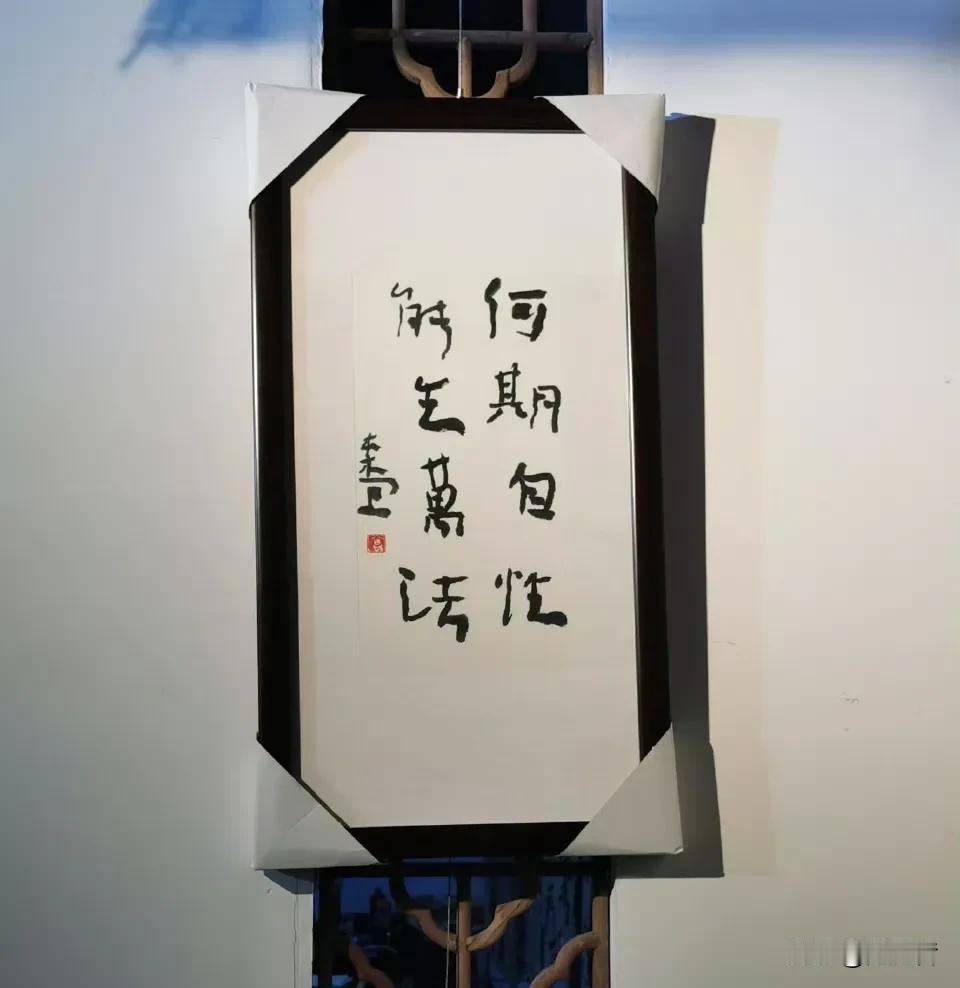 何期自性
能生萬法